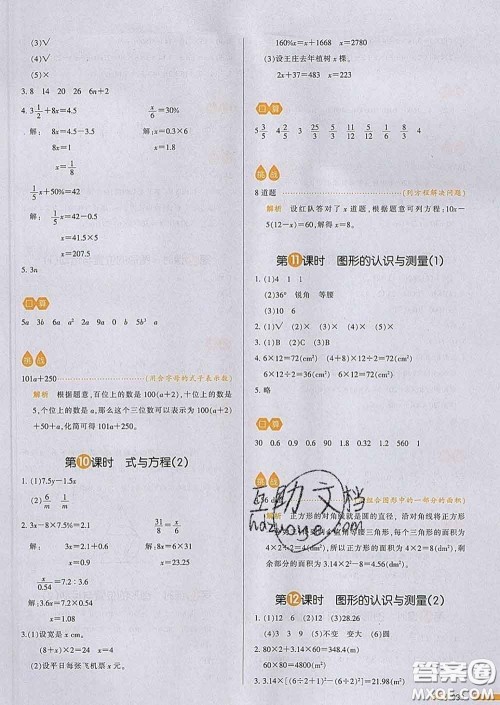 (3)√
(4)√
(5)×
3. 8 14 20 26 6n+2
4. 3 1/2 +8x=4.5 x/6=30%
解: 8x=4.5-3.5 解: x=0.3×6
8x=1 x=1.8
x=1/8
1/5 x+50%=42
解: 1/5 x=42-0.5
1/5 x=41.5
x=207.5
5. 3n
口算
5a 3b 6a a² 2a a² 9a
挑战
101a+250 (用含字母的式子表示数)
解析 根据题意,百位上的数是100(a+2),十位上的数是
5,个位上的数是a,那么这个三位数可以表示为100(a+2)
+50+a,化简可得101a+250。
第10课时 式与方程(2)
1. (1)7.5y-1.5x
(2)6/m m/6
2. 3x-8×7.5%=2.1 31/8=6/x
3x=2.1+0.6 解: 8x=6×31
3x=2.7 8x=186
x=0.9 x=23.25
x/0.54=7.2:3.6
解: 3.6x=7.2×0.54
x=1.08
3. (1)设宽是x cm。
(8+x)×2=24 x=4
(2)设平日每张飞机票x元。
160%x=x+1668 x=2780
(3)设王庄去年植树x棵。
2x+37=483 x=223
口算
挑战
8道题 (列方程解决问题)
解析 设红队答对了x道题,根据题意可列方程: 10x-
5(12-x)=60,解得x=8。
第11课时 图形的认识与测量(1)
1. (1)4 1 1
(2)36° 锐角 等腰
(3)30
2. (1)√ (2)× (3)× (4)×
3. (1)B (2)C (3)B
4. 6×12=72(cm²) 6×12=72(cm²)
6×12÷2=36(cm²) 6×12=72(cm²)
5. 略
口算
30 0.6 0.9 30 90 1.5 100
挑战
组合图形中的一部分的面积)
解析 正方形的对角线就是圆的直径,沿对角线将正方形
4×2÷2=4(dm²),所以正方形的面积为4×2=8(dm²),剩
余部分的面积为3.14×2²-8=4.56(dm²)。
互助文档
hazuoye.com
第12课时 图形的认识与测量(2)
1. (1)12 6 (2)12 (3)28.26
(4)9 3 (5)不变 变大 (6)圆
2. 80×2+3.14×60=348.4(m)
60×80=4800(m²)
答案圈
MXQE.COM